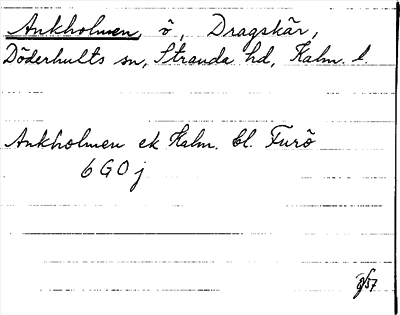 Ankholmen, ö, Dragskär,
Döderhults sn, Stranda hd, Kalm. l.
Ankholmen ek Kalm. bl. Furö
6 G 0 j